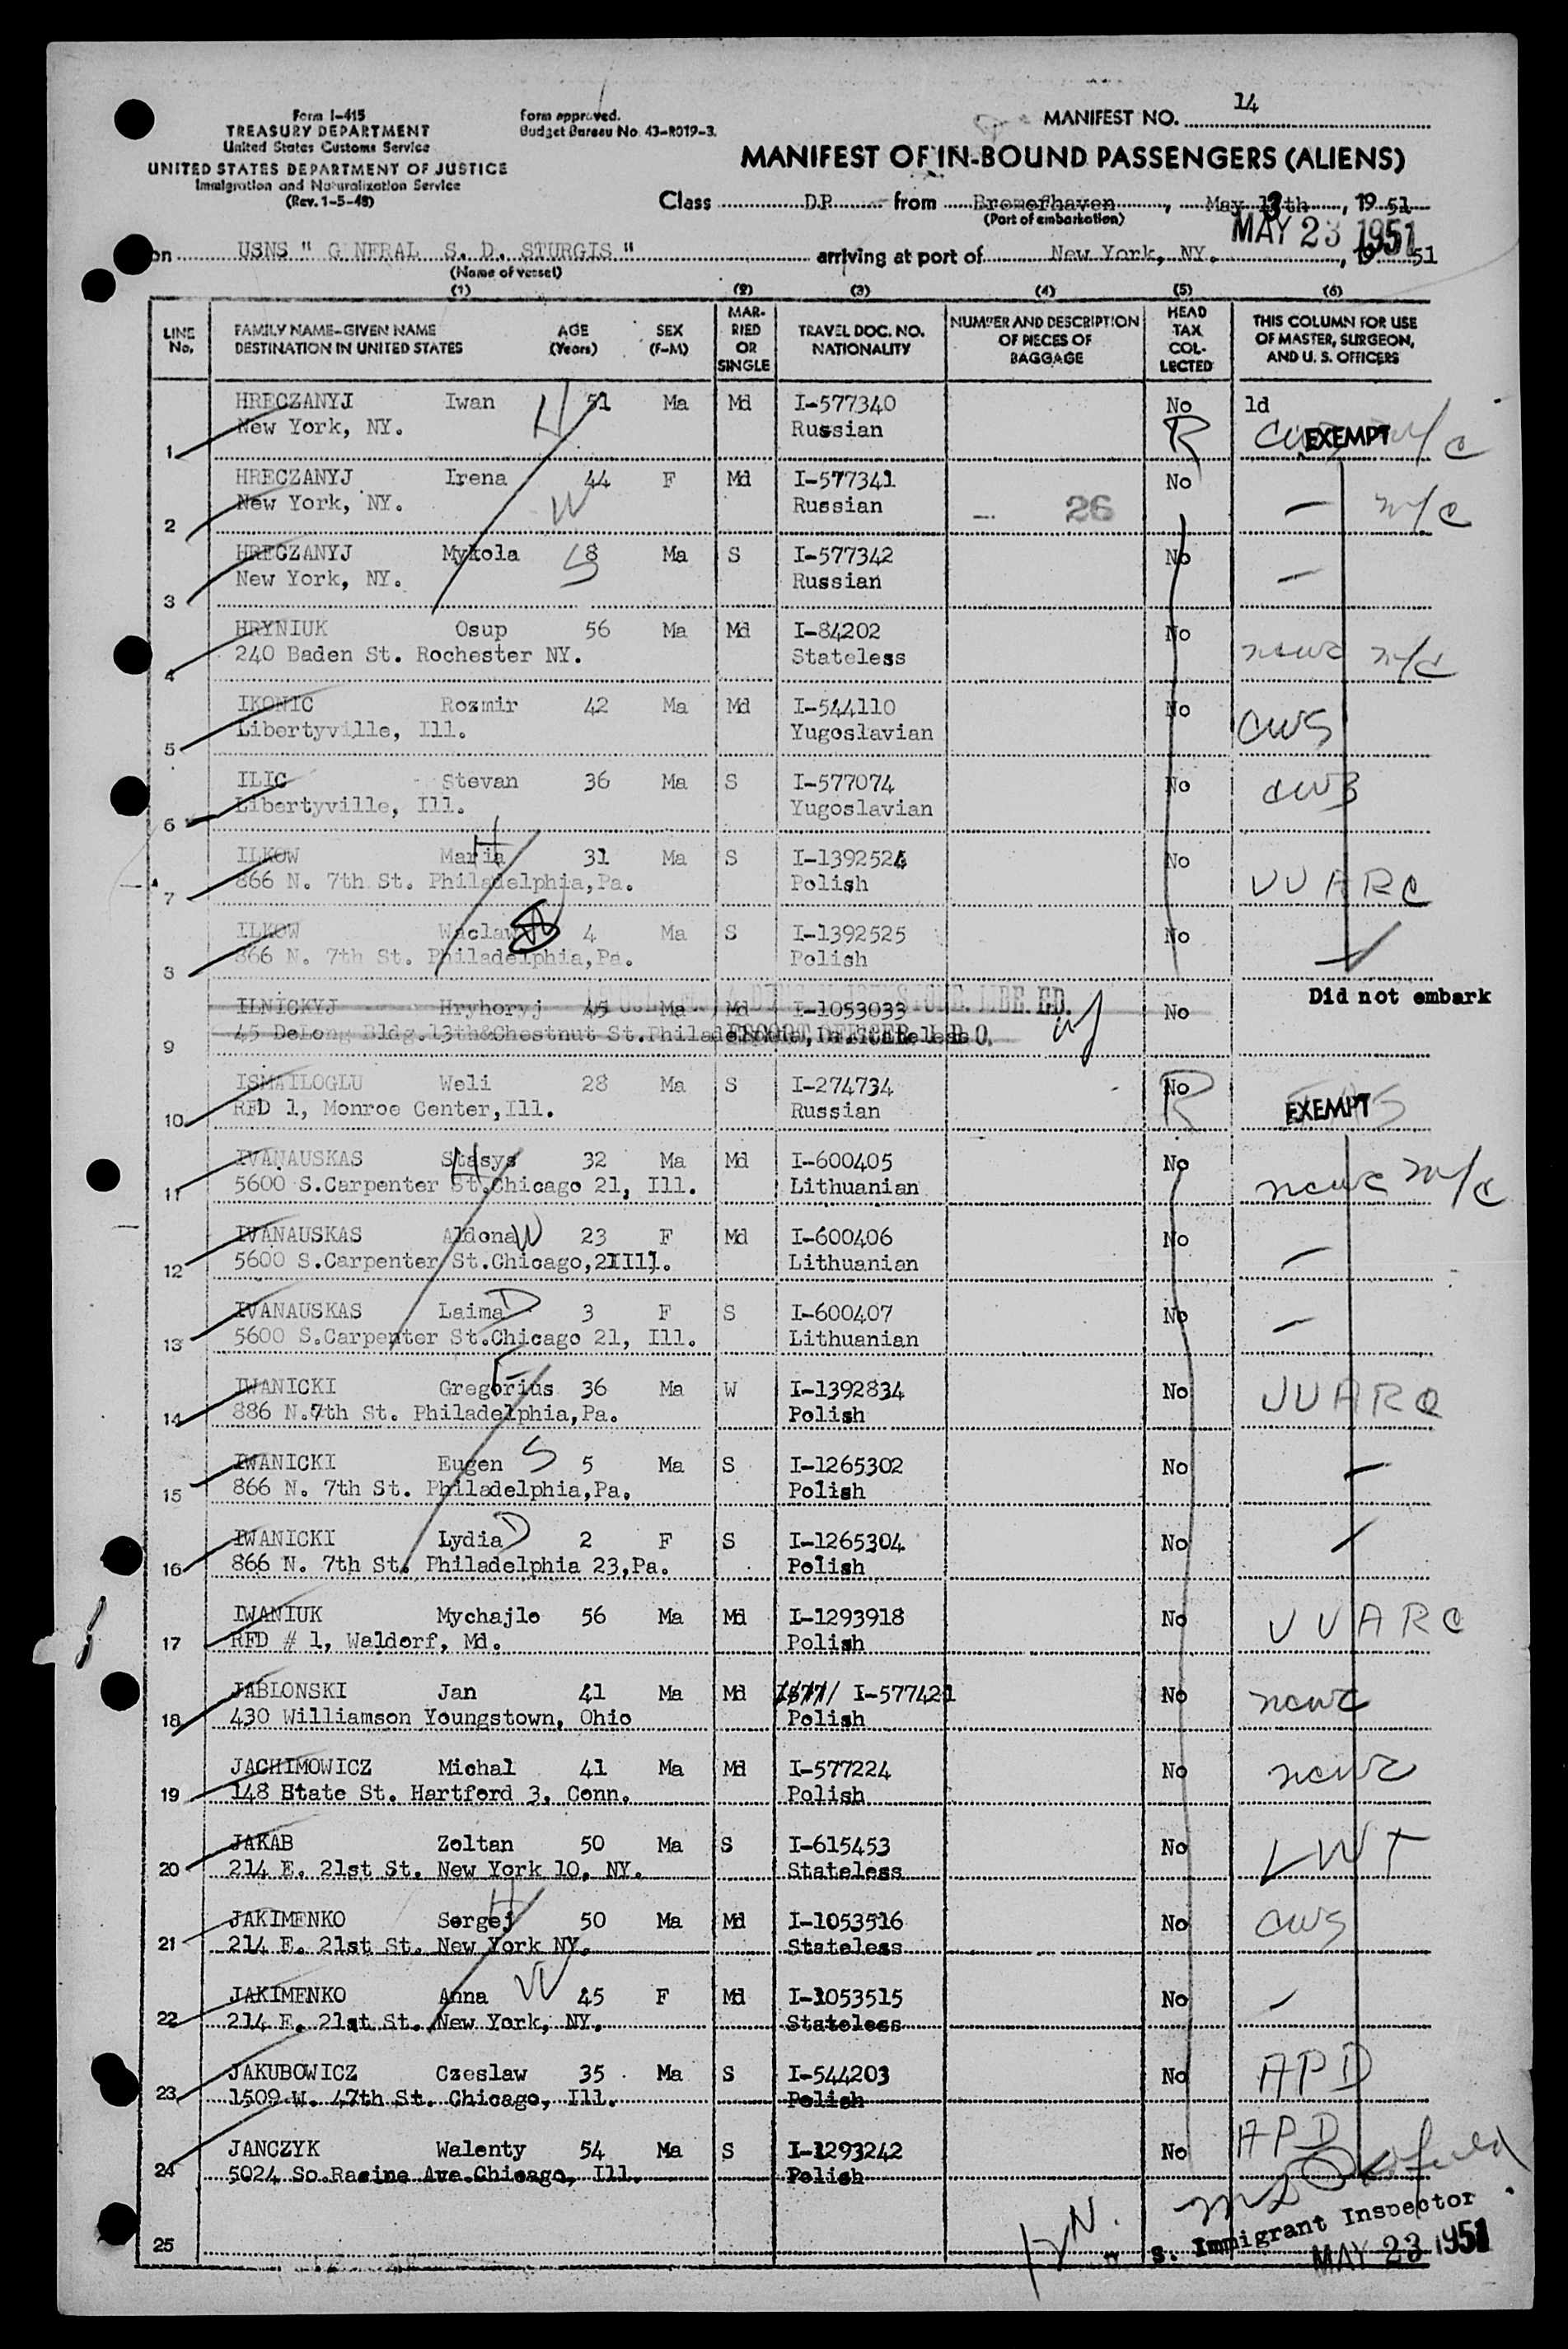 Form I-415
TREASURY DEPARTMENT
United States Customs Service
UNITED STATES DEPARTMENT OF JUSTICE
Immigration and Naturalization Service
(Rev. 1-5-48)
Form approved.
Budget Bureau No. 43-R019-3.
MANIFEST NO. 14
MANIFEST OF IN-BOUND PASSENGERS (ALIENS)
Class D.P. from Bremerhaven, May 13th, 19 51
(Port of embarkation)
MAY 23 1951
on USNS " GENERAL S. D. STURGIS " arriving at port of New York, NY. , 19 51
(Name of vessel)
(1) (2) (3) (4) (5) (6)
LINE No. FAMILY NAME-GIVEN NAME DESTINATION IN UNITED STATES AGE (Years) SEX (F-M) MARRIED OR SINGLE TRAVEL DOC. NO. NATIONALITY NUMBER AND DESCRIPTION OF PIECES OF BAGGAGE HEAD TAX COLLECTED THIS COLUMN FOR USE OF MASTER, SURGEON, AND U. S. OFFICERS
HRECZANYJ Iwan H 51 Ma Md I-577340 No 1d
1 New York, NY. Russian R EXEMPT n/c
HRECZANYJ Irena 44 F Md I-577341 No
2 New York, NY. W Russian 26 — n/c
HRECZANYJ Mykola 8 Ma S I-577342 No
3 New York, NY. S Russian —
HRYNIUK Osup 56 Ma Md I-84202 No
4 240 Baden St. Rochester NY. Stateless ncwc n/c
IKONIC Rozmir 42 Ma Md I-544110 No
5 Libertyville, Ill. Yugoslavian CWS
ILIC Stevan 36 Ma S I-577074 No
6 Libertyville, Ill. Yugoslavian CWS
ILKOW Maria H 31 Ma S I-1392524 No
7 866 N. 7th St. Philadelphia,Pa. Polish UUARC
ILKOW Waclaw 4 Ma S I-1392525 No
8 866 N. 7th St. Philadelphia,Pa. Polish
ILNICKYJ Hryhoryj 45 Ma Md I-1053033 No Did not embark
9 45 DeLong Bldg.13th&Chestnut St.Philadelphia, Pa. Stateless
ESCORT OFFICER I.R.O.
ISMAILOGLU Weli 28 Ma S I-274734 No
10 RFD 1, Monroe Center,Ill. Russian R EXEMPT
IVANAUSKAS Stasys H 32 Ma Md I-600405 No
11 5600 S.Carpenter St.Chicago 21, Ill. Lithuanian ncwc n/c
IVANAUSKAS Aldona W 23 F Md I-600406 No
12 5600 S.Carpenter St.Chicago,21Ill. Lithuanian —
IVANAUSKAS Laima D 3 F S I-600407 No
13 5600 S.Carpenter St.Chicago 21, Ill. Lithuanian —
IWANICKI Gregorius F 36 Ma W I-1392834 No
14 886 N.7th St. Philadelphia,Pa. Polish UUARC
IWANICKI Eugen S 5 Ma S I-1265302 No
15 866 N. 7th St. Philadelphia,Pa. Polish —
IWANICKI Lydia D 2 F S I-1265304 No
16 866 N. 7th St. Philadelphia 23,Pa. Polish
IWANIUK Mychajlo 56 Ma Md I-1293918 No
17 RFD # 1, Waldorf, Md. Polish UUARC
JABLONSKI Jan 41 Ma Md I-577421 No
18 430 Williamson Youngstown, Ohio Polish ncwc
JACHIMOWICZ Michal 41 Ma Md I-577224 No
19 148 State St. Hartford 3, Conn. Polish ncwc
JAKAB Zoltan 50 Ma S I-615453 No
20 214 E. 21st St. New York 10, NY. Stateless LWF
JAKIMENKO Sergej H 50 Ma Md I-1053516 No
21 214 E. 21st St. New York NY. Stateless CWS
JAKIMENKO Anna W 45 F Md I-1053515 No
22 214 E. 21st St. New York, NY. Stateless —
JAKUBOWICZ Czeslaw 35 Ma S I-544203 No
23 1509 W. 47th St. Chicago, Ill. Polish APD
JANCZYK Walenty 54 Ma S I-1293242 No
24 5024 So.Racine Ave.Chicago, Ill. Polish APD
25
S. Immigrant Inspector
MAY 23 1951